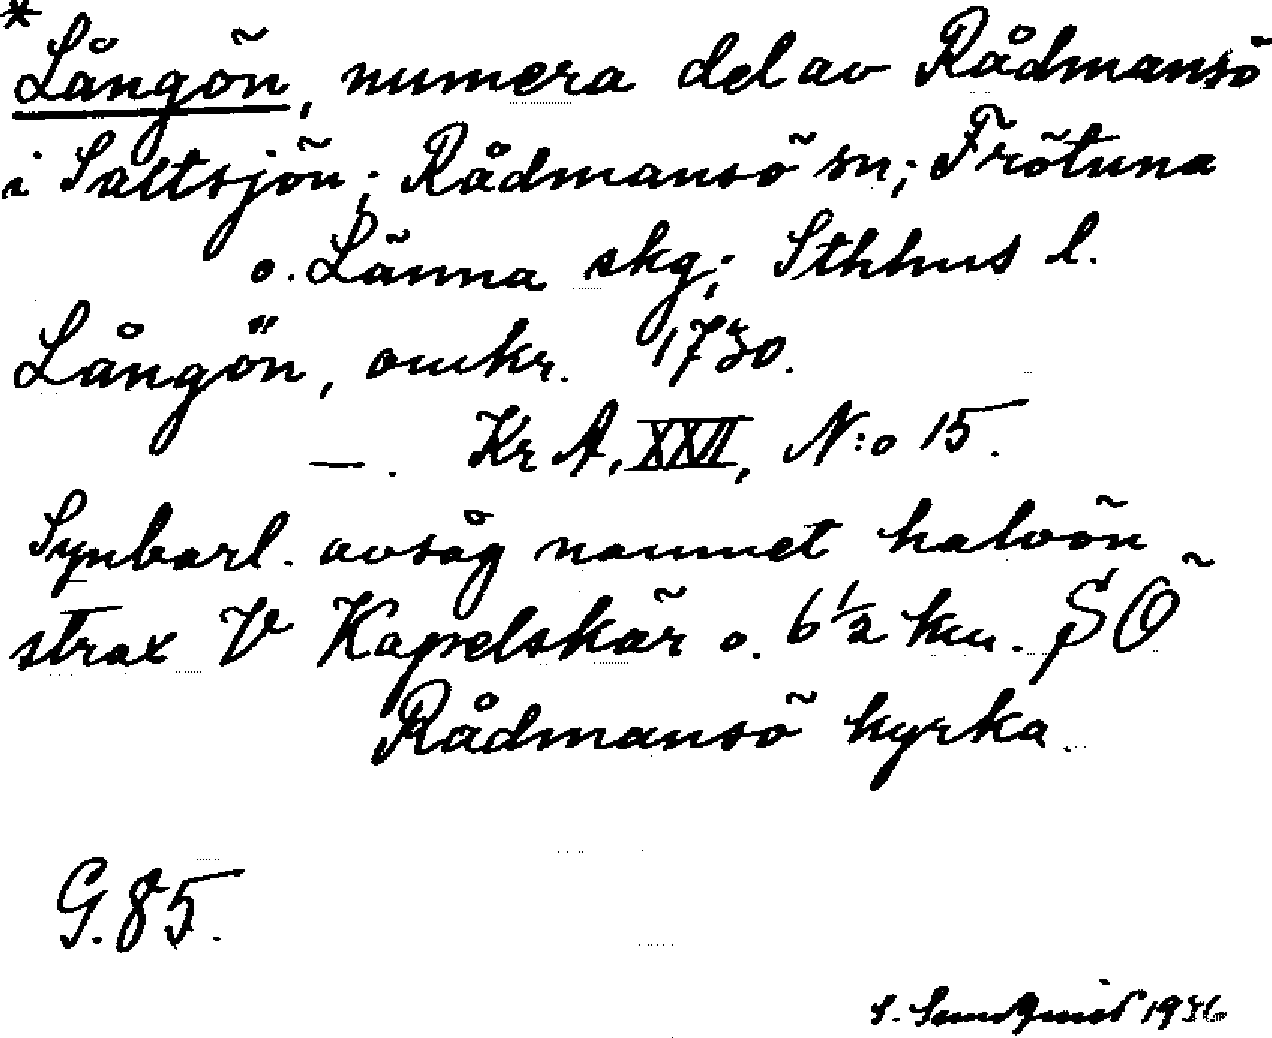 *Långön, numera del av Rådmansö
i Saltsjön; Rådmansö sn; Frötuna
o. Länna skg; Sthhus l.
Långön, omkr. 1730.
—. Kr A, XXII, N:o 15.
Synbarl. avsåg namnet halvön
strax V Kapelskär o. 6½ km. SÖ
Rådmansö kyrka
G. 85.
S. Sundquist 1936